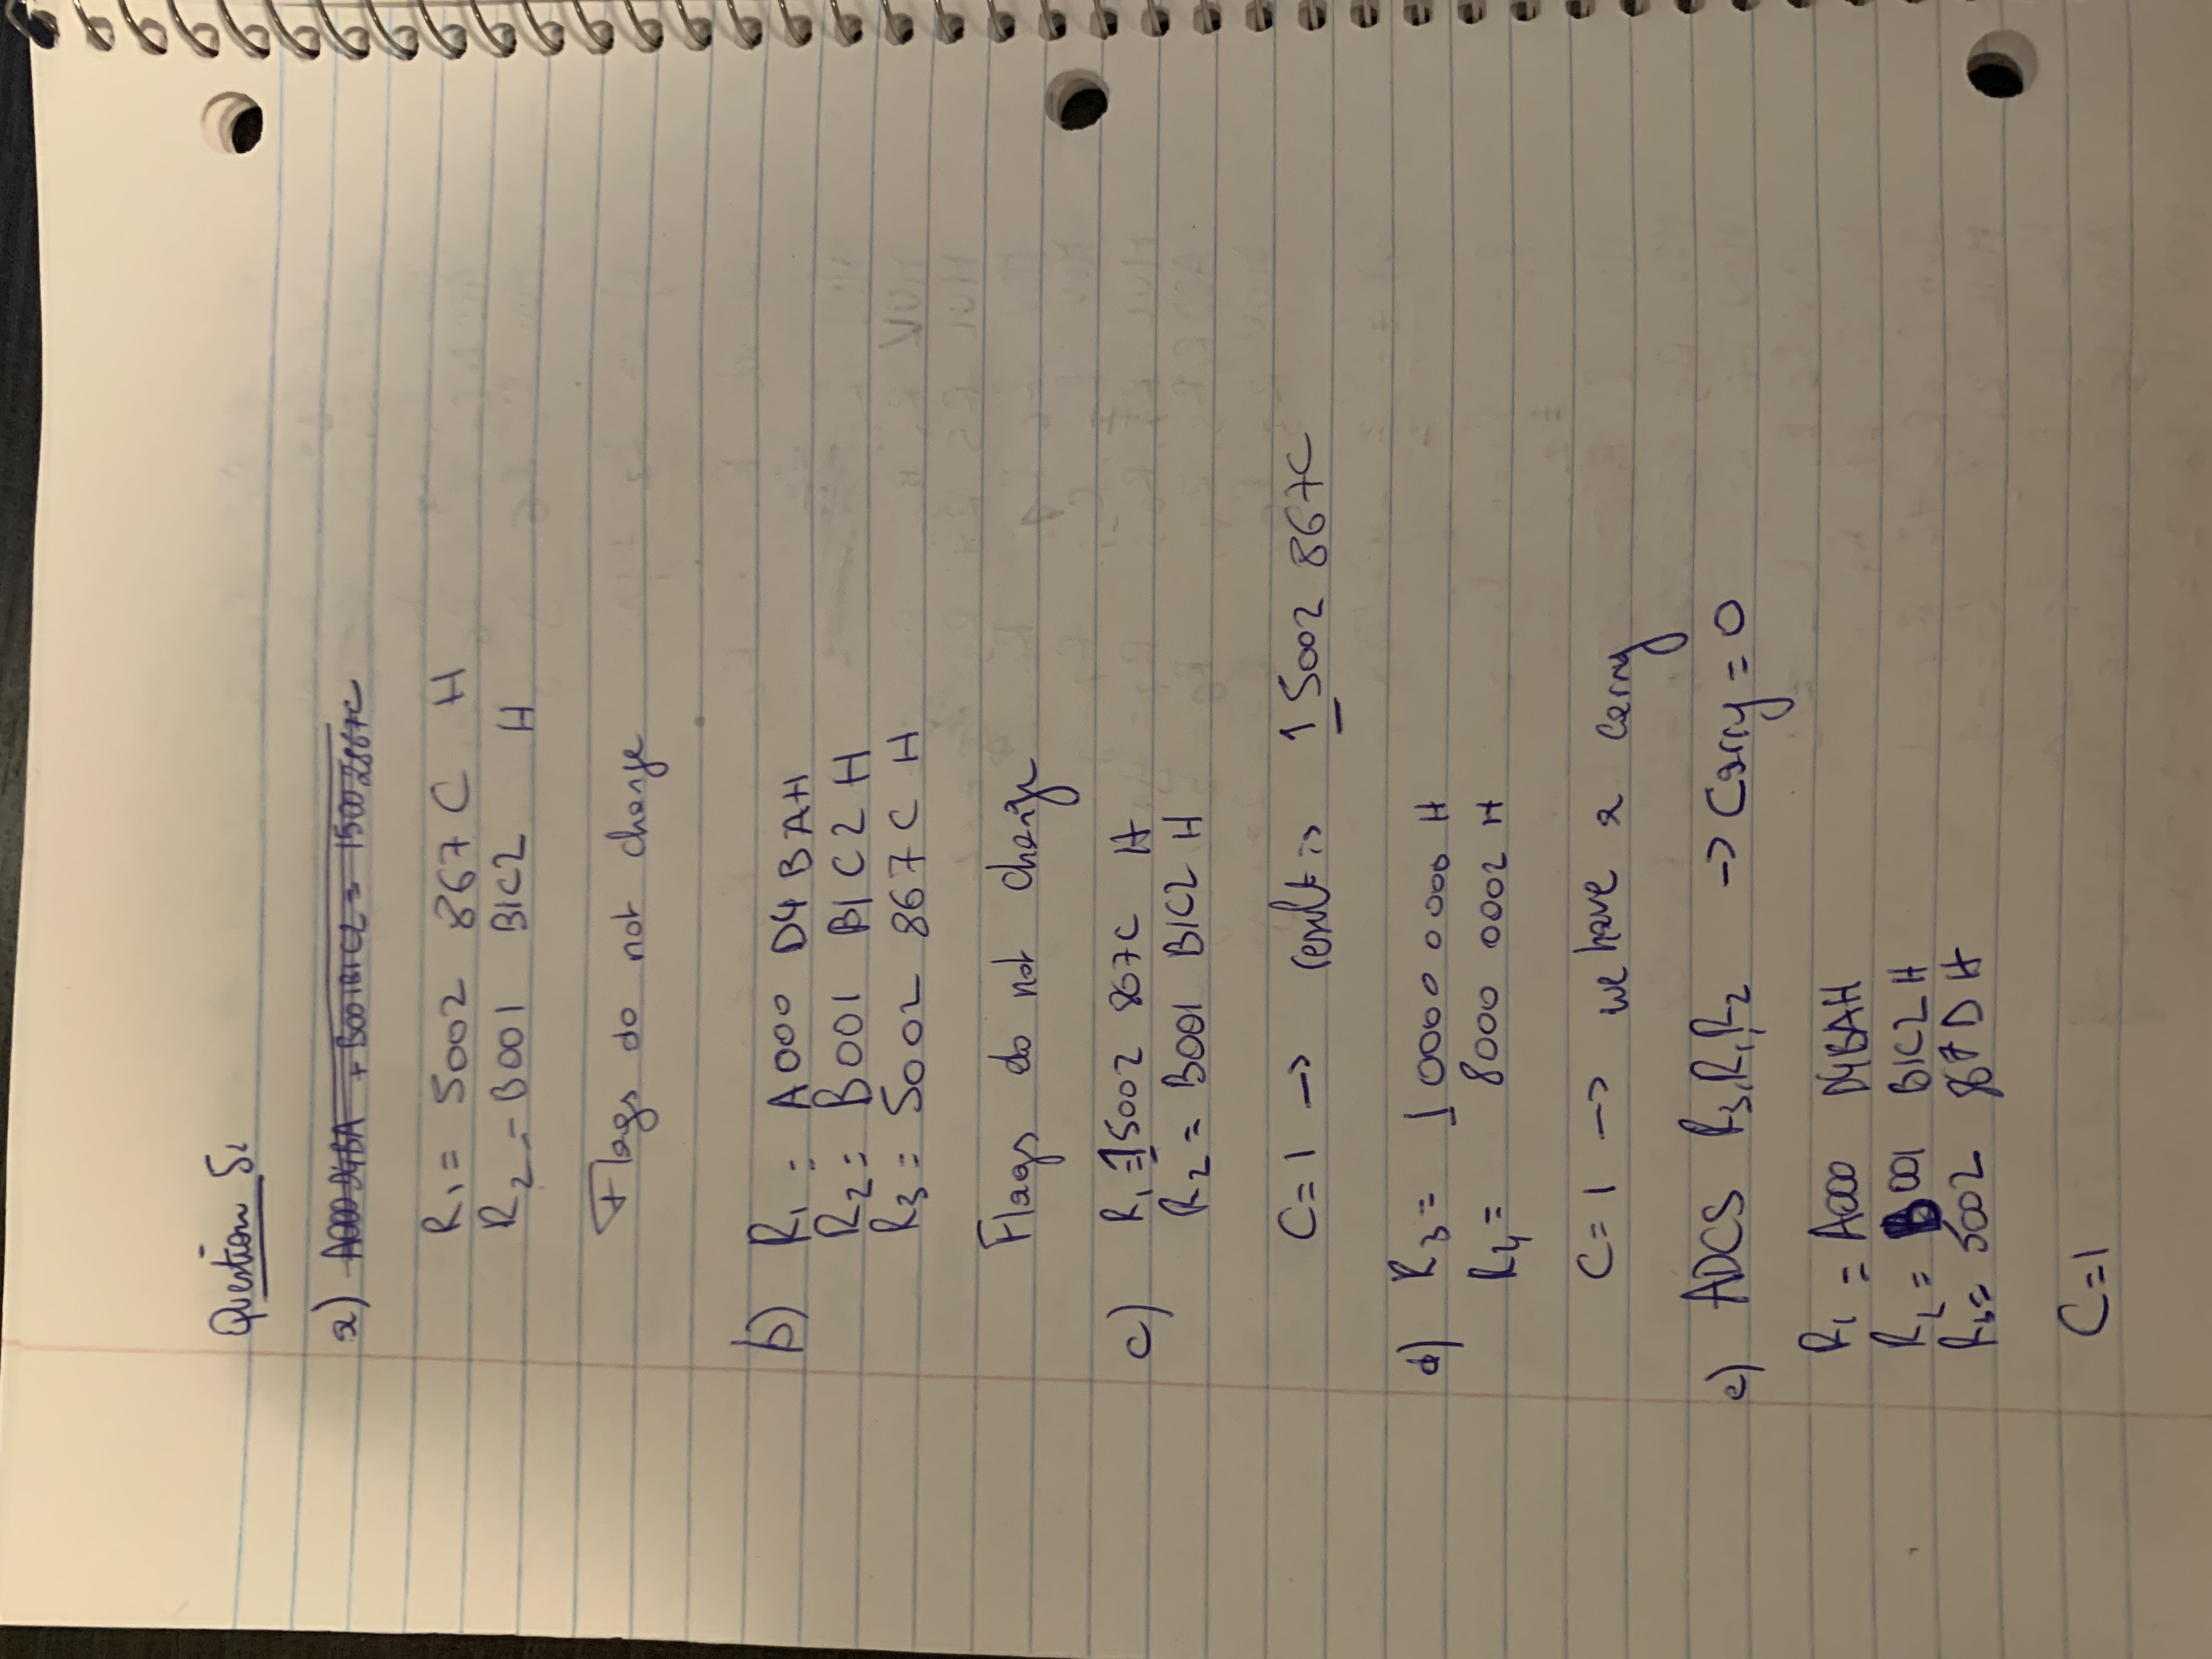 Question 5:
a) A000 D4BA + B001B1C2 = 15002867C
R1 = 5002 867C H
R2 = B001 B1C2 H
Flags do not change
b) R1 = A000 D4BAH
R2 = B001 B1C2 H
R3 = 5002 867C H
Flags do not change
c) R1 = 15002 867C H
R2 = B001 B1C2 H
C=1 → result is 1 5002 867C
d) R3 = 1 0000 0000 H
R4 = 8000 0002 H
C=1 → we have a carry
e) ADCS R3,R1,R2 → Carry = 0
R1 = A000 D4BAH
R2 = B001 B1C2 H
R3= 5002 867D H
C=1